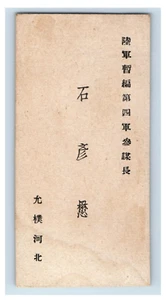 陸軍暫編第四軍參謀長
石彥懋
允樸河北